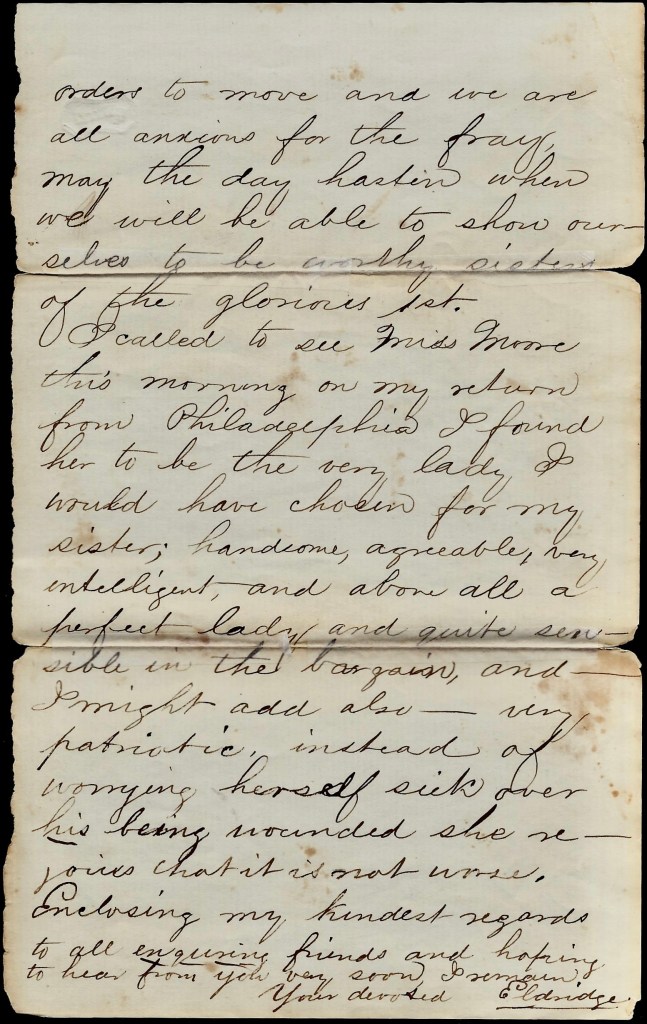 orders to move and we are
all anxious for the fray,
may the day hasten when
we will be able to show our-
selves to be worthy sisters
of the glorious 1st.
I called to see Miss Moore
this morning on my return
from Philadephia I found
her to be the very lady I
would have chosen for my
sister; handsome, agreeable, very
intelligent, and above all a
perfect lady, and quite sen-
sible in the bargain, and —
I might add also — very
patriotic. instead of
worrying herself sick over
his being wounded she re-
joices that it is not worse.
Enclosing my kindest regards
to all enquiring friends and hoping
to hear from you very soon, I remain
Your devoted Eldridge